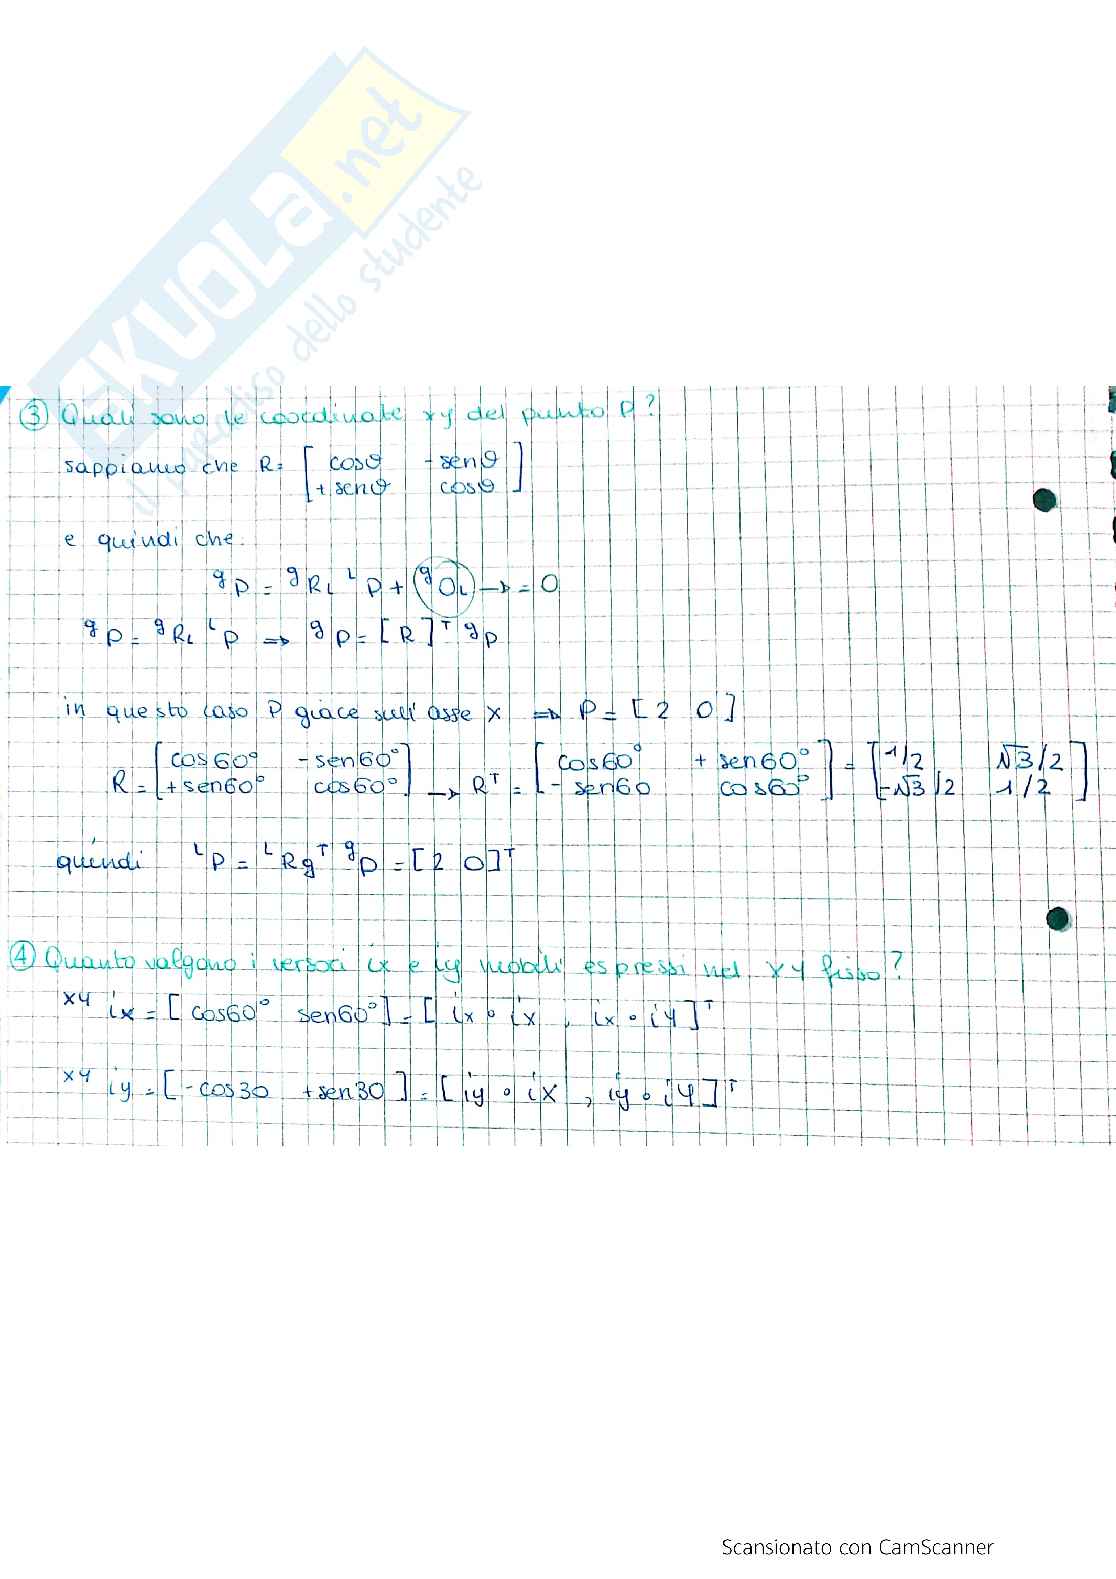 SKUOLA.net
il paradiso dello studente
③ Quali sono le coordinate xy del punto P?
sappiamo che R= [ cosϑ -senϑ
+senϑ cosϑ ]
e quindi che
ᵍP = ᵍR_L ᴸP + ᵍO_L → = 0
ᵍP = ᵍR_L ᴸP ⇒ ᵍP = [R]ᵀ ᵍP
in questo caso P giace sull'asse x ⇒ P = [2 0]
R = [ cos60° -sen60°
+sen60° cos60° ] → Rᵀ = [ cos60° +sen60°
-sen60 cos60° ] = [ 1/2 √3/2
-√3/2 1/2 ]
quindi ᴸP = ᴸRgᵀ ᵍP = [2 0]ᵀ
④ Quanto valgono i versori ix e iy mobili espressi nel XY fisso?
ˣʸ ix = [ cos60° sen60° ] = [ ix ∘ iX , ix ∘ iY ]ᵀ
ˣʸ iy = [ -cos30 +sen30 ] = [ iy ∘ iX , iy ∘ iY ]ᵀ
Scansionato con CamScanner